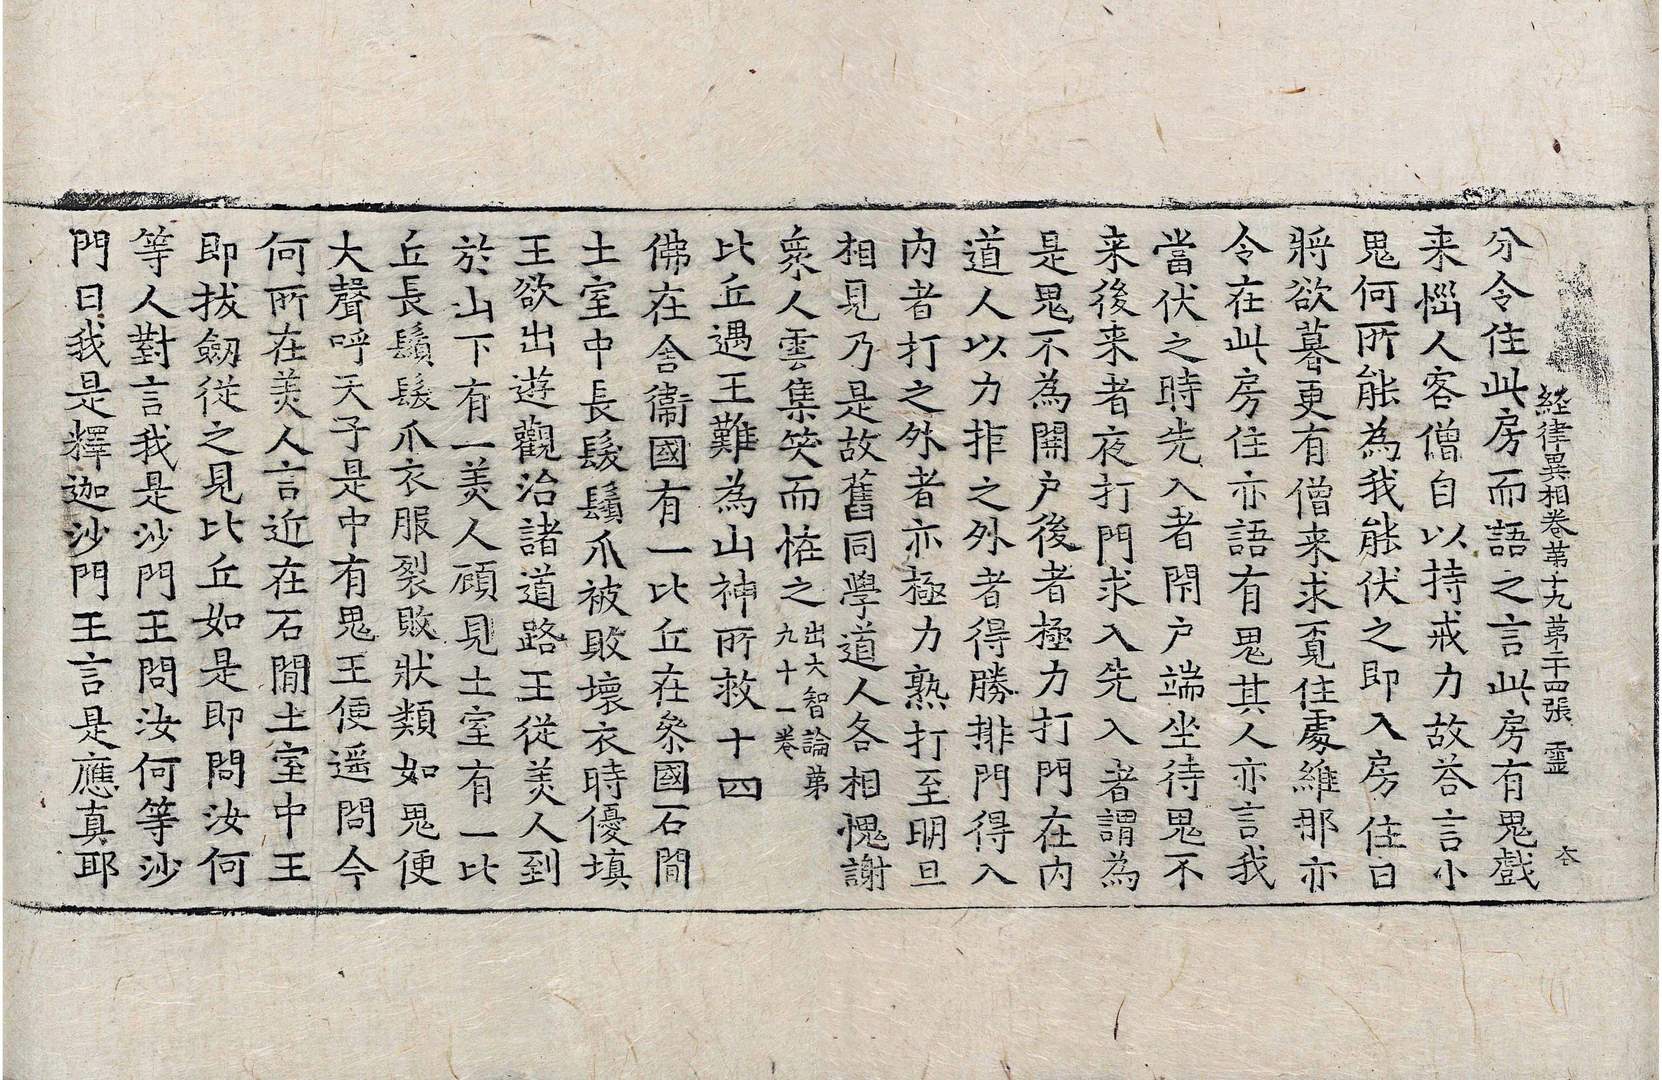 経律異相卷第十九第二十四張 靈 夲
分令住此房而語之言此房有鬼戲
来惱人客僧自以持戒力故荅言小
鬼何所能為我能伏之即入房住日
將欲暮更有僧来求覓住處維那亦
令在此房住亦語有鬼其人亦言我
當伏之時先入者閇户端坐待鬼不
来後来者夜打門求入先入者謂為
是鬼不為開户後者極力打門在内
道人以力拒之外者得勝排門得入
内者打之外者亦極力熟打至明旦
相見乃是故舊同學道人各相愧謝
衆人雲集笑而恠之出大智論苐
九十一卷
比丘遇王難為山神所救十四
佛在舍衞國有一比丘在叅國石間
土室中長髮鬚爪被敗壞衣時優填
王欲出遊觀洽諸道路王従美人到
於山下有一美人顧見土室有一比
丘長鬚髮爪衣服裂敗狀類如鬼便
大聲呼天子是中有鬼王便遥問今
何所在美人言近在石間土室中王
即拔劒従之見比丘如是即問汝何
等人對言我是沙門王問汝何等沙
門曰我是釋迦沙門王言是應真耶